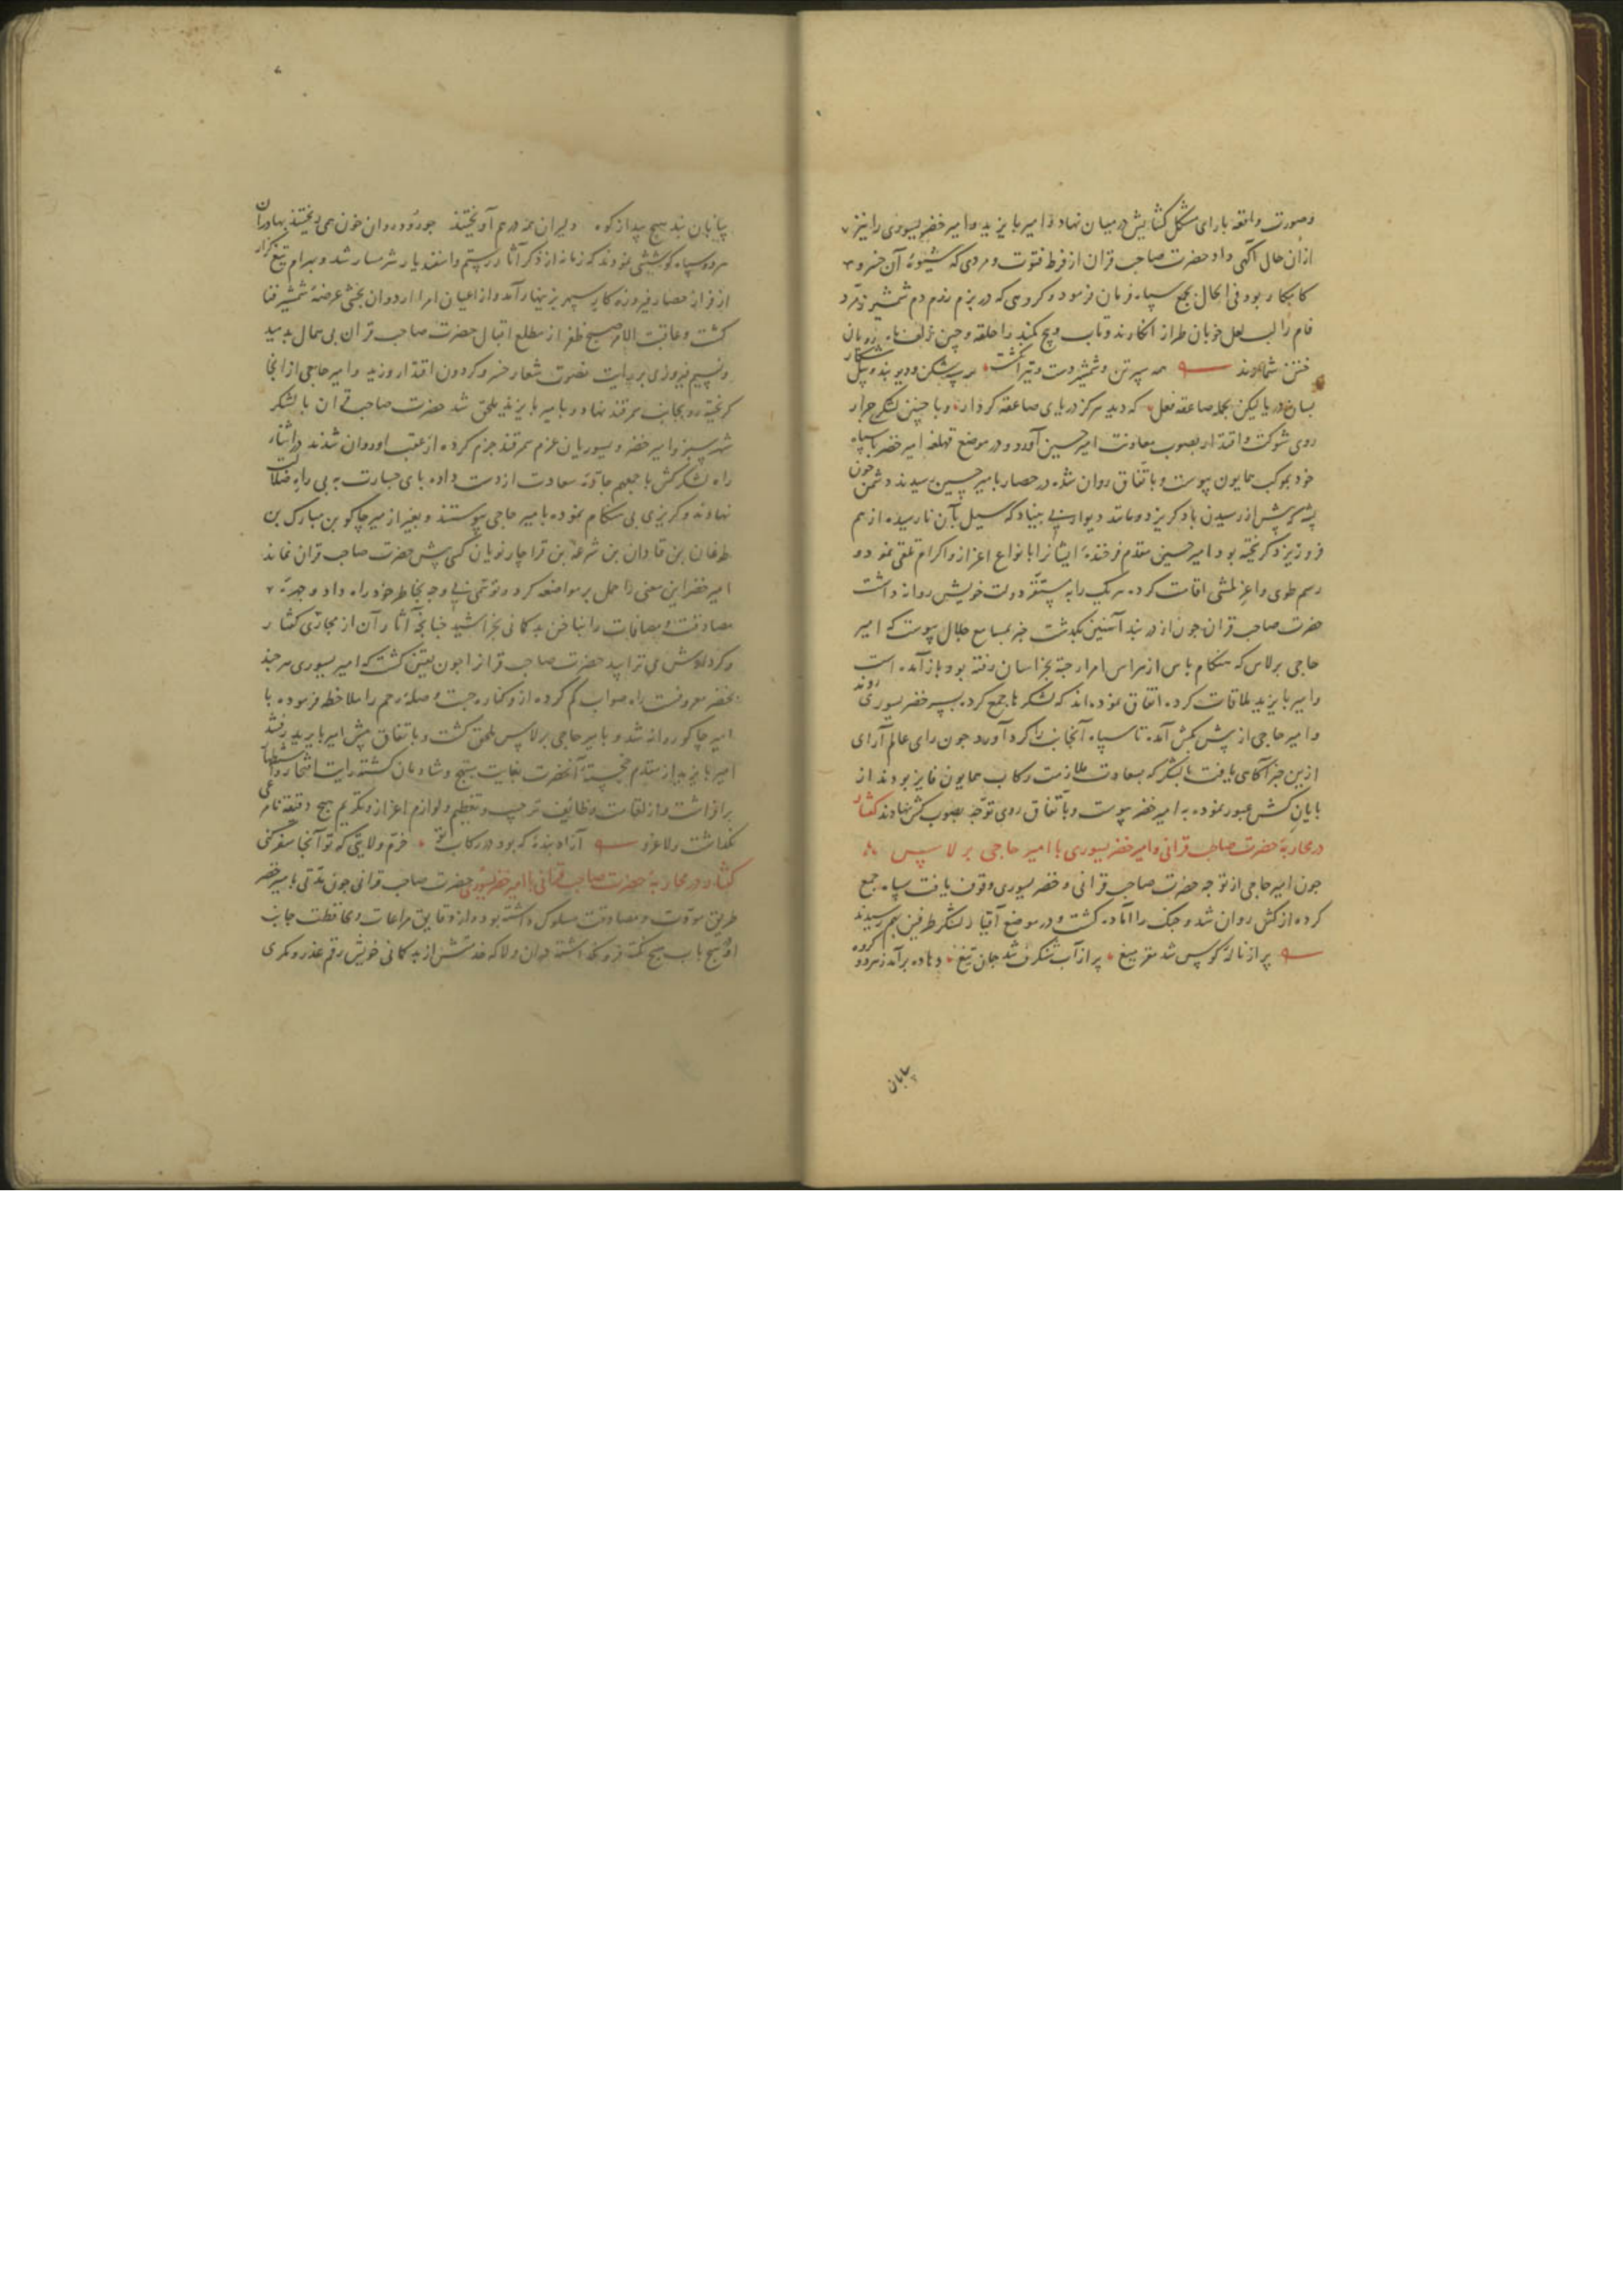 وصورت واقعه با رای مشکل کشایش در میان نهاد و امیر بایزید و امیر خضر یسوری را نیز
ازان حال آکهی داد حضرت صاحب قران از فرط فتوت و مردی که شیوهٔ آن خسرو
کامکار بود فی الحال بجمع سپاه فرمان فرمود و کروهی که در بزم رزم دم شمشیر زمرد
فام را لب لعل خوبان طراز انکارند و تاب و پیچ کمند را حلقه و چین زلف ماه رویان
ختن شمارند همه سپرتن و شمشیر دست و تیر انکشت همه سپه شکن و دیو بند و پیل شکار
بسان دریا لیکن بحمله صاعقه فعل که دید هرکز دریای صاعقه کردار و با چنین لشکر جرار
روی شوکت و اقتدار بصوب معاونت امیر حسین آورد و در موضع امیر خضر با سپاه
خود بموکب همایون پیوست و باتفاق روان شده در حصار بامیر حسین رسیدند دشمن چون
پشه که پیش از رسیدن باد کریزد و مانند دیوار بی بنیاد که سیل بآن نارسیده از هم
فرو ریزد کریخته بود امیر حسین مقدم فرخندهٔ ایشانرا بانواع اعزاز و اکرام تلقی نمود و
رسم طوی و اقامت کرده هر یک را به مستقر دولت خویش روانه داشت
حضرت صاحب قران چون از دربند آهنین بکذشت خبر بمسامع جلال پیوست که امیر
حاجی برلاس که هنکام باس از هراس امراء جته بخراسان رفته بود باز آمده است
و امیر بایزید ملاقات کرده اتفاق نموده اند که لشکرها جمع کرده بسر خضر یسوری روند
و امیر حاجی از پیش بکش آمده تا سپاه آنجانب را کرد آورد چون رای عالم آرای
ازین خبر آکاهی یافت با لشکر که بسعادت ملازمت رکاب همایون فایز بودند از
کش عبور نموده به امیر خضر پیوست و باتفاق روی توجه بصوب کش نهادند کفتار
در محاربهٔ حضرت صاحب قرانی و امیر خضر یسوری با امیر حاجی برلاس
چون امیر حاجی از توجه حضرت صاحب قرانی و خضر یسوری وقوف یافت سپاه جمع
کرده از کش روان شد و جنک را آماده کشت و در موضع آقیار لشکر طرفین بهم رسیدند
پر از نالهٔ کوس شد مغز میغ پر از آب شنکرف شد جان تیغ دهاده برآمد ز هر دو کروه
بیابان
بیابان نبد هیچ پیدا ز کوه دلیران همه در هم آویختند چو رود روان خون همی ریختند بهادران
هر دو سپاه کوششی نمودند که زمانه از ذکر آثار رستم و اسفندیار شرمسار شد و بهرام تیغ کزار
از فراز حصار فیروزه کار سپهر بزینهار آمد و از اعیان امرا اردوان بخشی عرضهٔ شمشیر فنا
کشت و عاقبت الامر صبح ظفر از مطلع اقبال حضرت صاحب قران بی همال بدمید
و نسیم فیروزی بر رایت نصرت شعار خسرو کردون اقتدار وزید و امیر حاجی از انجا
کریخته رو بجانب سمرقند نهاد و بامیر بایزید ملحق شد حضرت صاحب قران با لشکر
شهر سبز و امیر خضر و یسوریان عزم سمرقند جزم کرده از عقب او روان شدند در اثنای
راه لشکر کش باجمعهم جادهٔ سعادت از دست داده پای جسارت به بی راه ضلالت
نهادند و کریزی بی هنکام نموده بامیر حاجی پیوستند و بغیر از میر چاکو بن مبارک بن
طغان بن قادان بن شرغه بن قراچار نویان کسی پیش حضرت صاحب قران نماند
امیر خضر این معنی را حمل بر مواضعه کرد و توهمی بی وجه بخاطر خود راه داد و چهرهٔ
مصادقت و مصافات را بناخن بدکمانی بخراشید چنانچه آثار آن از مجاری کفتار
و کردارش می تراوید حضرت صاحب قرانرا چون یقین کشت که امیر یسوری سر چشمهٔ
خضر معرفت راه صواب کم کرده از وی کناره جست و صلهٔ رحم را ملاحظه فرموده با
امیر چاکو روانه شد و بامیر حاجی برلاس ملحق کشت و باتفاق پیش امیر بایزید رفتند
امیر بایزید از مقدم خجستهٔ آنحضرت بغایت مبتهج و شادمان کشته رایت افتخار و استظهار
برافراشت و از لطایف وظایف ترحیب و تعظیم و لوازم اعزاز و تکریم هیچ دقیقه نامرعی
نکذاشت ولا غرو آزاد بندهٔ که بود در رکاب تو خرم ولایتی که تو آنجا سفر کنی
کفتار در محاربهٔ حضرت صاحب قرانی با امیر خضر یسوری حضرت صاحب قرانی چون مدتی بامیر خضر
طریق مودت و مصادقت مسلوک داشته بود و از دقایق مراعات و محافظت جانب
او هیچ باب هیچ نکته فرو نکذاشته دران ولا که خدمتش از بدکمانی خویش رقم غدر و مکری